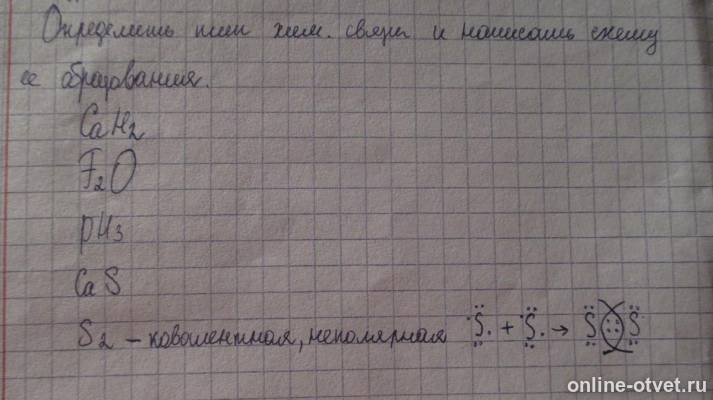 Определить тип хим. связи и написать схему
ее образования.
CaH2
F2O
PH3
CaS
S2 – ковалентная, неполярная S + S → S S
online-otvet.ru